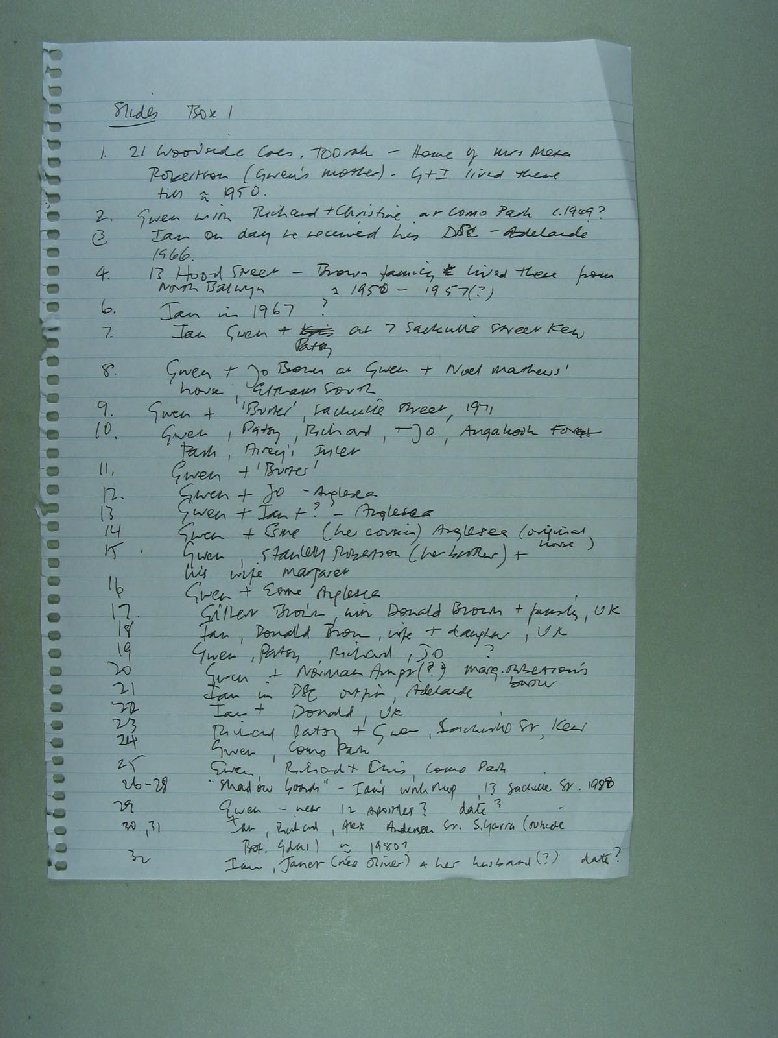 Slides Box 1
1. 21 Woodside Cres. Toorak - Home of Mrs
Robertson (Gwen's mother). G+I lived there
till ≈ 1950.
2. Gwen with Richard + Christine at Como Park c.1949?
3 Ian on day he received his DSc - Adelaide
1966.
4. 13 Hood Street - Brown family lived there from
North Balwyn ≈ 1950 - 1957(?)
6. Ian in 1967 ?
7. Ian Gwen + at 7 Sackville Street Kew
Patsy
8. Gwen + Jo Brown at Gwen + Noel Mathews'
house, Eltham South
9. Gwen + 'Buster', Sackville Street, 1971
10. Gwen, Patsy, Richard, Jo, Angahook
Park, Airey's Inlet
11. Gwen + 'Buster'
12. Gwen + Jo - Anglesea
13 Gwen + Ian + ? - Anglesea
14 Gwen + Esme (her cousin) Anglesea (original
house)
15. Gwen, Stanley Robertson (her brother) +
his wife Margaret
16 Gwen + Esme Anglesea
17. Gilbert Brown, with Donald Brown + family, UK
18 Ian, Donald Brown, wife + daughter, UK
19 Gwen, Patsy, Richard, Jo ?
20 Gwen + Norman (?) Marg. Robertson's
brother
21 Ian in DSc outfit, Adelaide
22 Ian + Donald, UK
23 Richard Patsy + Gwen, Sackville St, Kew
24 Gwen, Como Park
25 Gwen, Richard + Chris, Como Park
26-28 "Shadow boards" - Ian's workshop, 13 Sackville St. 1980
29 Gwen - near 12 Apostles? date?
30, 31 Ian, Richard, Alex Anderson St. S. Yarra (outside
Bot. Gdns) ≈ 1980?
32 Ian, Janet (nee Oliver) + her husband (?) date?